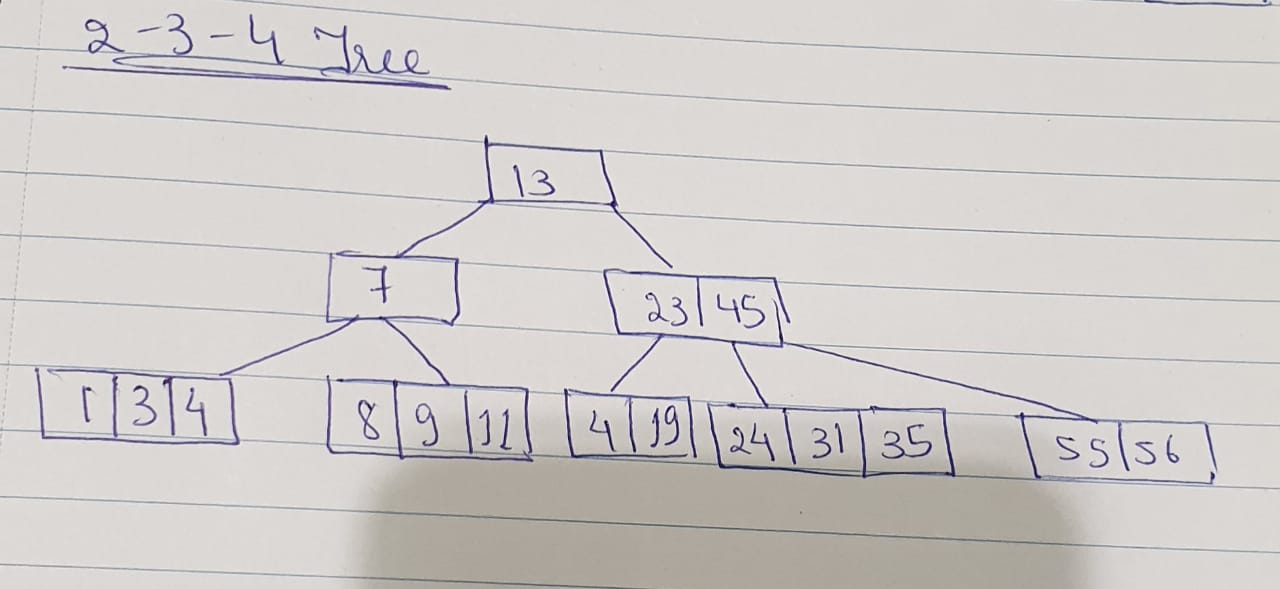 2-3-4 Tree
13
7 23 45
1 3 4 8 9 11 4 19 24 31 35 55 56